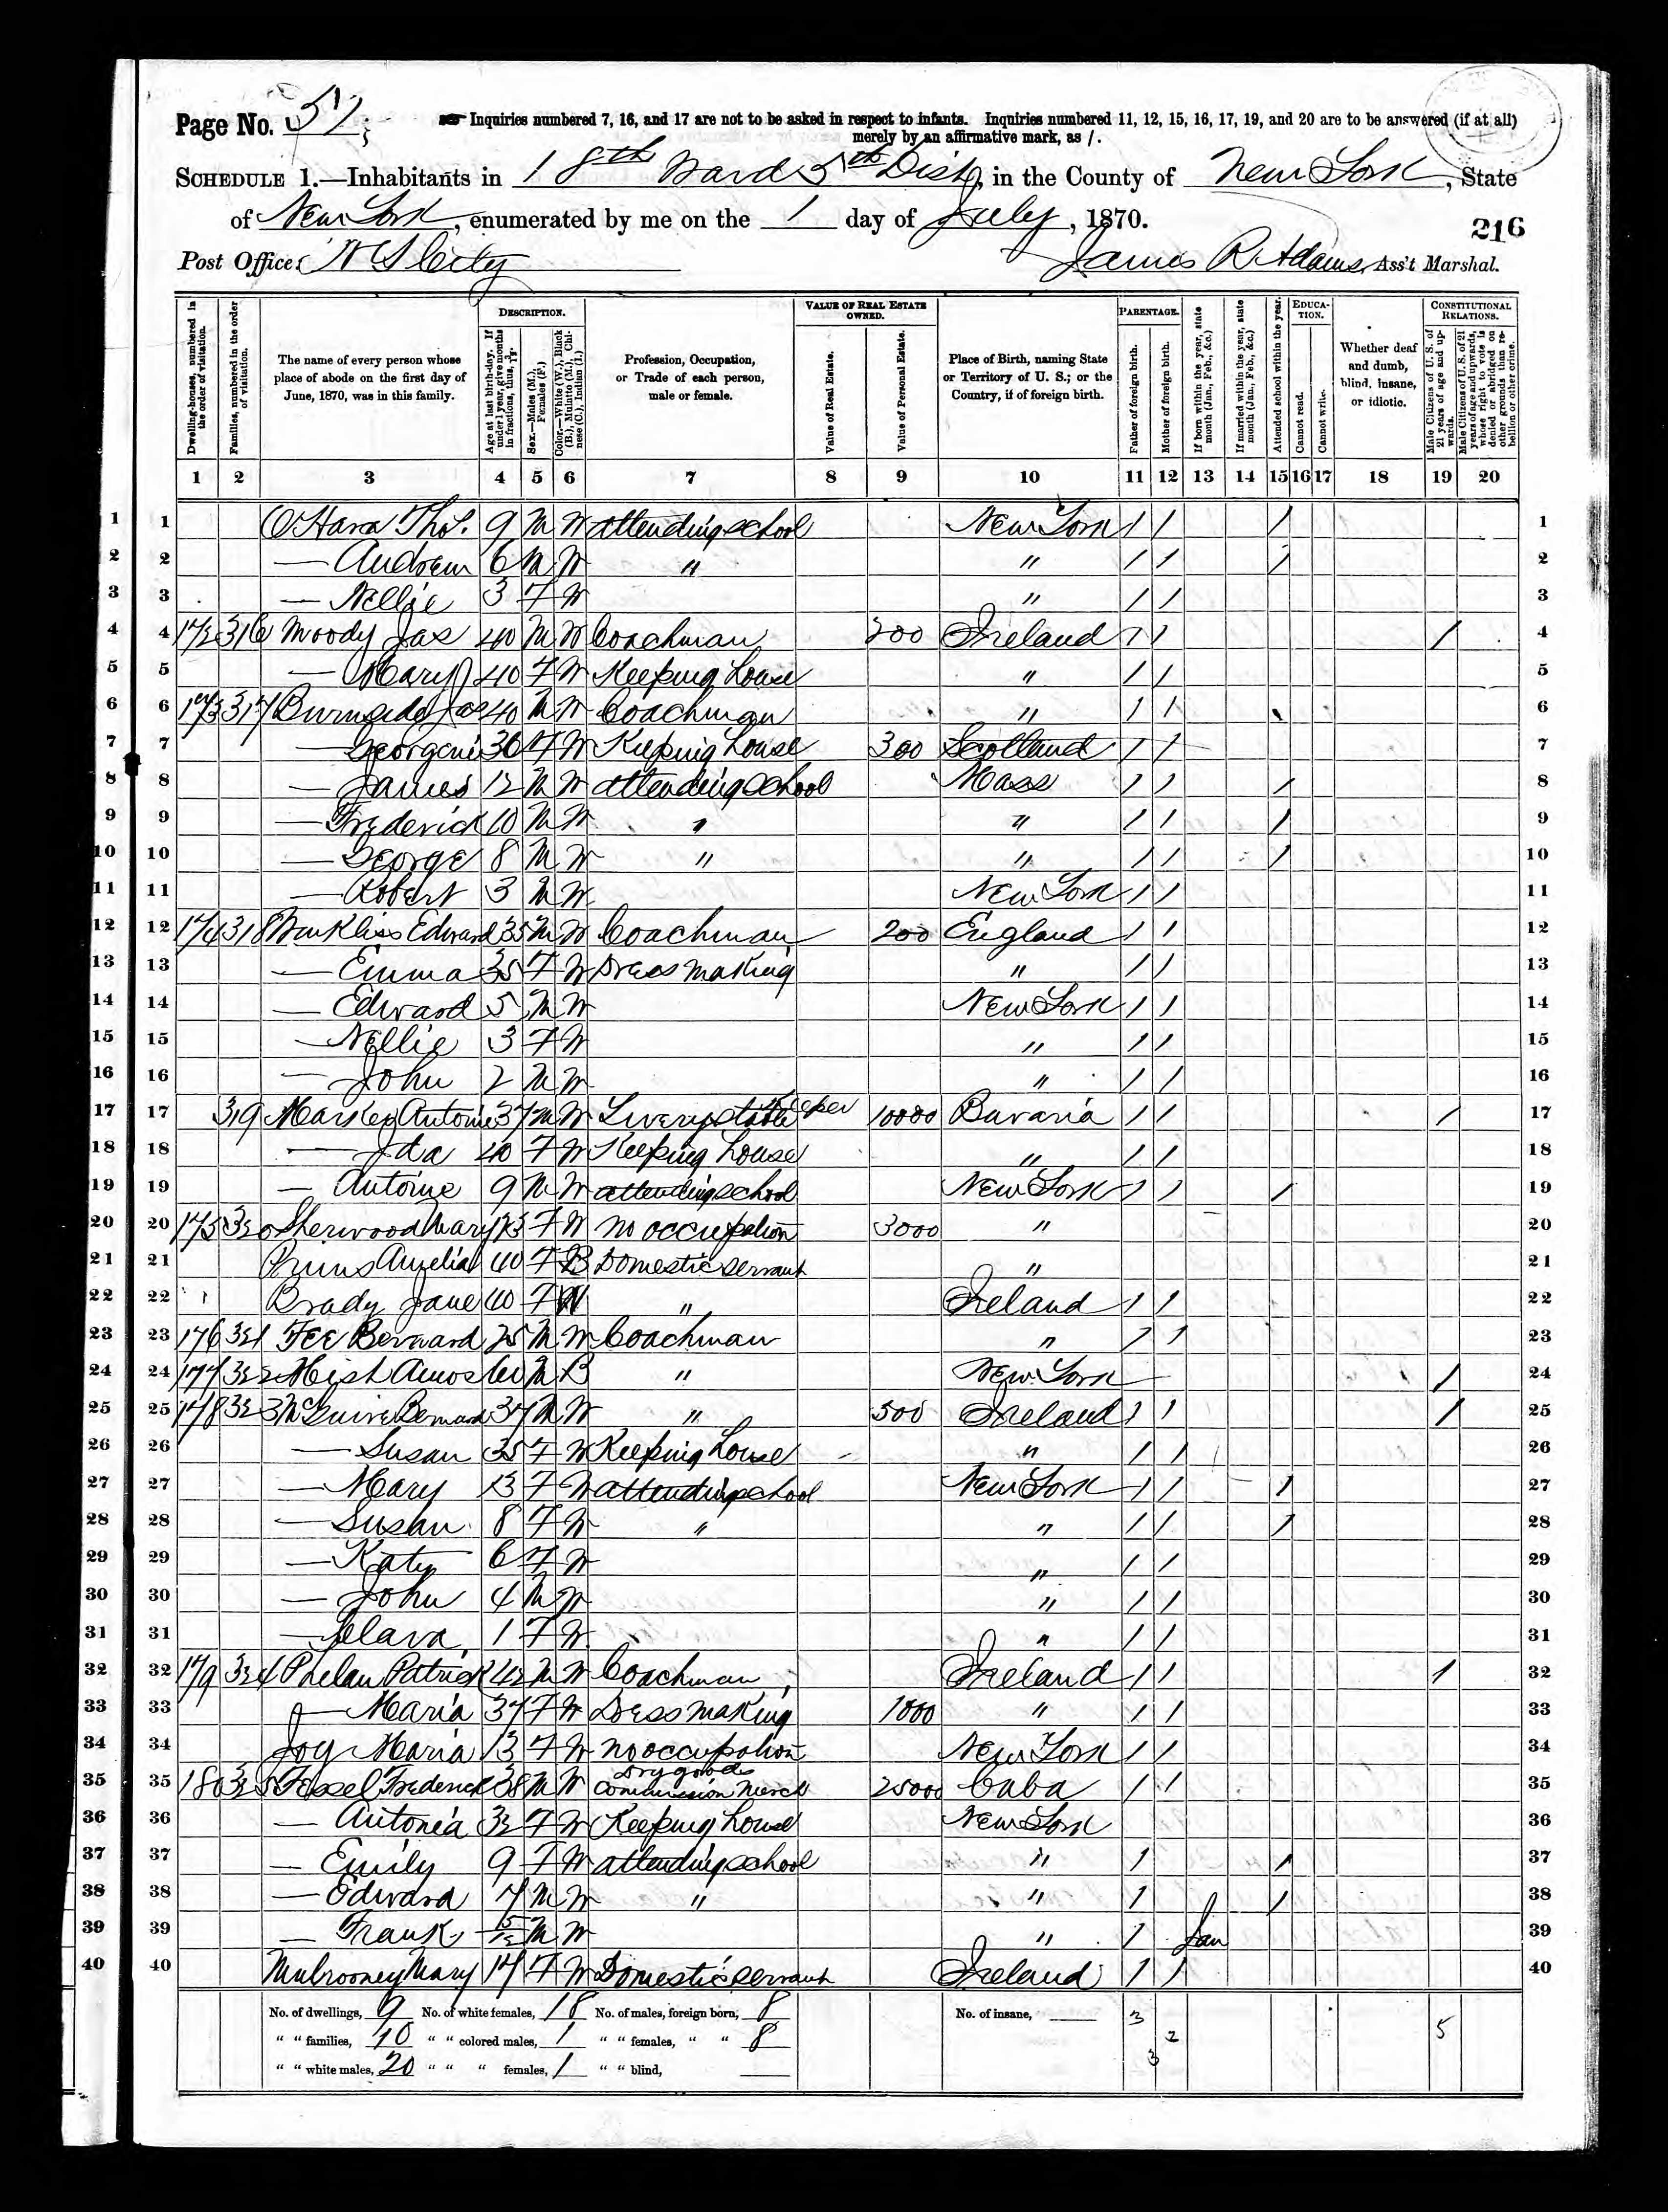 Page No. 51
Inquiries numbered 7, 16, and 17 are not to be asked in respect to infants. Inquiries numbered 11, 12, 15, 16, 17, 19, and 20 are to be answered (if at all)
merely by an affirmative mark, as /.
SCHEDULE 1.—Inhabitants in 18th Ward 5th Dist, in the County of New York, State
of New York, enumerated by me on the 1 day of July, 1870.
216
Post Office: N Y City James R Adams, Ass't Marshal.
Dwelling-houses, numbered in the order of visitation.
Families, numbered in the order of visitation.
The name of every person whose place of abode on the first day of June, 1870, was in this family.
DESCRIPTION.
Age at last birth-day. If under 1 year, give months in fractions, thus, 3/12.
Sex.—Males (M.), Females (F.)
Color.—White (W.), Black (B.), Mulatto (M.), Chinese (C.), Indian (I.)
Profession, Occupation, or Trade of each person, male or female.
VALUE OF REAL ESTATE OWNED.
Value of Real Estate.
Value of Personal Estate.
Place of Birth, naming State or Territory of U. S.; or the Country, if of foreign birth.
PARENTAGE.
Father of foreign birth.
Mother of foreign birth.
If born within the year, state month (Jan., Feb., &c.)
If married within the year, state month (Jan., Feb., &c.)
Attended school within the year.
EDUCATION.
Cannot read.
Cannot write.
Whether deaf and dumb, blind, insane, or idiotic.
CONSTITUTIONAL RELATIONS.
Male Citizens of U. S. of 21 years of age and upwards.
Male Citizens of U. S. of 21 years of age and upwards, whose right to vote is denied or abridged on other grounds than rebellion or other crime.
1 2 3 4 5 6 7 8 9 10 11 12 13 14 15 16 17 18 19 20
1 1 O'Hara Tho's. 9 M W attending school New York / / / 1
2 2 — Andrew 6 M W " " / / / 2
3 3 — Nellie 3 F W " / / 3
4 4 172 316 Moody Jas 40 M W Coachman 200 Ireland / / / 4
5 5 — Mary 40 F W Keeping house " / / 5
6 6 173 317 Jas 40 M W Coachman " / / 6
7 7 — 36 F W Keeping house 300 Scotland / / 7
8 8 — James 12 M W attending school Mass / / / 8
9 9 — Frederick 10 M W " " / / / 9
10 10 — George 8 M W " " / / / 10
11 11 — Robert 3 M W New York / / 11
12 12 174 318 Edward 35 M W Coachman 200 England / / 12
13 13 — Emma 35 F W Dress making " / / 13
14 14 — Edward 5 M W New York / / 14
15 15 — Nellie 3 F W " / / 15
16 16 — John 2 M W " / / 16
17 17 319 Antoine 37 M W Livery stable Keeper 10000 Bavaria / / / 17
18 18 — Ida 40 F W Keeping house " / / 18
19 19 — Antoine 9 M W attending school New York / / / 19
20 20 175 320 Sherwood Mary 73 F W no occupation 3000 " 20
21 21 Amelia 40 F B Domestic servant " 21
22 22 Brady Jane 40 F W " Ireland / / 22
23 23 176 321 Fee Bernard 25 M W Coachman " / / 23
24 24 177 322 Amos 60 M B " New York / 24
25 25 178 323 McGuire Bernard 37 M W " 500 Ireland / / / 25
26 26 — Susan 35 F W Keeping house " / / 26
27 27 — Mary 13 F W attending school New York / / / 27
28 28 — Susan 8 F W " " / / / 28
29 29 — Katy 6 F W " / / 29
30 30 — John 4 M W " / / 30
31 31 — Clara 1 F W " / / 31
32 32 179 324 Phelan Patrick 42 M W Coachman Ireland / / / 32
33 33 — Maria 37 F W Dress making 1000 " / / 33
34 34 Joy Maria 13 F W no occupation New York / / 34
35 35 180 325 Fessel Frederick 38 M W Dry goods Commission Merch 25000 Cuba / / 35
36 36 — Antonia 32 F W Keeping house New York 36
37 37 — Emily 9 F W attending school " / / 37
38 38 — Edward 7 M W " " / / 38
39 39 — Frank 5/12 M W " / Jan 39
40 40 Mulrooney Mary 17 F W Domestic servant Ireland / / 40
No. of dwellings, 9 No. of white females, 18 No. of males, foreign born, 8 No. of insane, 3
" " families, 10 " " colored males, 1 " " females, " " 8 2 5
" " white males, 20 " " " females, 1 " " blind, 3